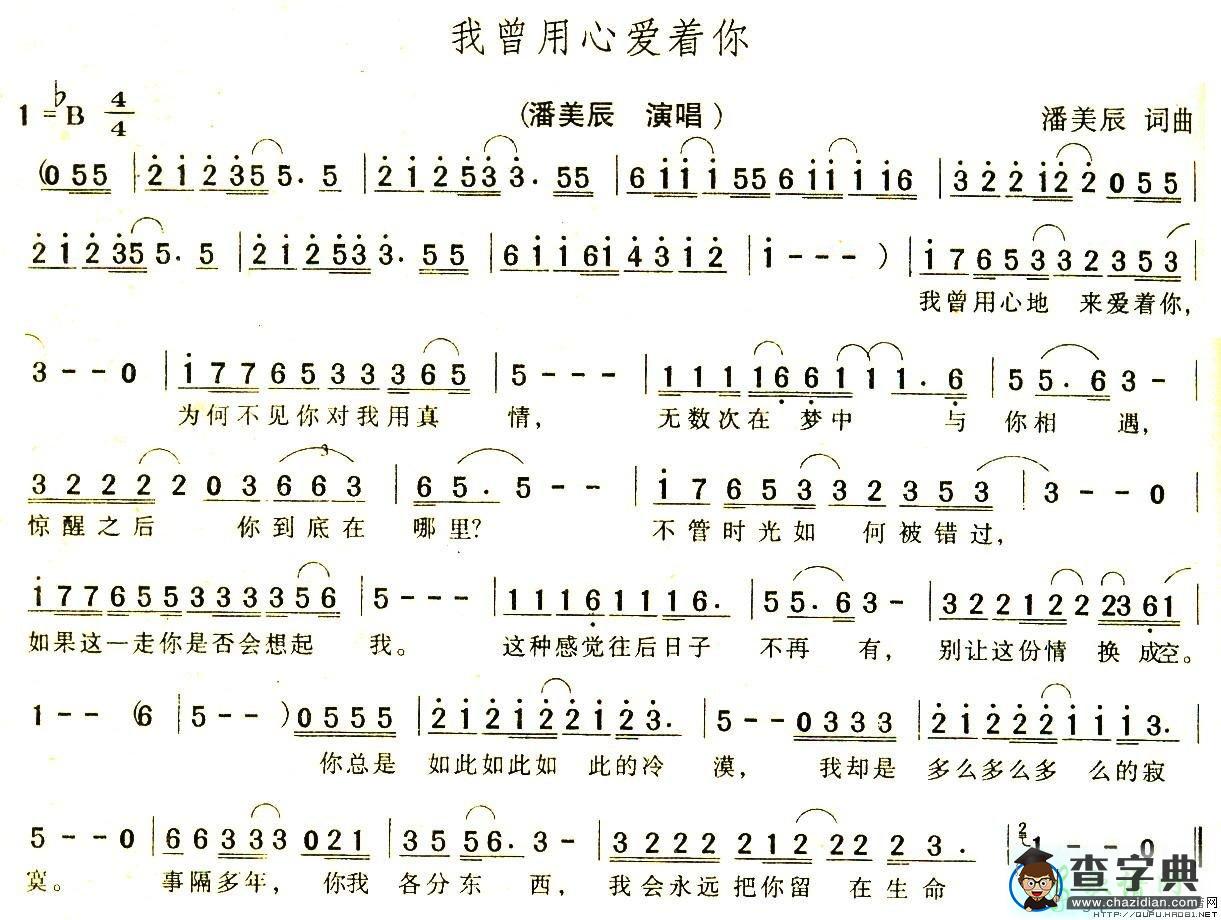 我曾用心爱着你
1=♭B 4/4 (潘美辰 演唱) 潘美辰 词曲
(0 5 5 | 2 1 2 3 5 5. 5 | 2 1 2 5 3 3. 5 5 | 6 1 1 1 5 5 6 1 1 1 1 6 | 3 2 2 1 2 2 0 5 5 |
2 1 2 3 5 5. 5 | 2 1 2 5 3 3. 5 5 | 6 1 1 6 1 4 3 1 2 | 1 - - - ) | 1 7 6 5 3 3 2 3 5 3 |
我曾用心地 来爱着你,
3 - - 0 | 1 7 7 6 5 3 3 3 6 5 | 5 - - - | 1 1 1 1 6 6 1 1 1. 6 | 5 5. 6 3 - |
为何不见你对我用真 情, 无数次在 梦中 与 你相 遇,
3 2 2 2 2 0 3 6 6 3 | 6 5. 5 - - | 1 7 6 5 3 3 2 3 5 3 | 3 - - 0 |
3
惊醒之后 你到底在 哪里? 不管时光如 何被错过,
1 7 7 6 5 5 3 3 3 3 5 6 | 5 - - - | 1 1 1 6 1 1 1 1 6. | 5 5. 6 3 - | 3 2 2 1 2 2 2 3 6 1 |
如果这一走你是否会想起 我。 这种感觉往后日子 不再 有, 别让这份情 换 成空。
1 - - (6 | 5 - - ) 0 5 5 5 | 2 1 2 1 2 2 1 2 3. | 5 - - 0 3 3 3 | 2 1 2 2 2 1 1 1 3. |
你总是 如此如此如 此的冷 漠, 我却是 多么多么多 么的寂
5 - - 0 | 6 6 3 3 3 0 2 1 | 3 5 5 6. 3 - | 3 2 2 2 2 1 2 2 2 2 3. | 1 - - 0 ‖
寞。 事隔多年, 你我 各分东 西, 我会永远把你留 在生命
查字典
www.chazidian.com
HTTP://QUPU.HAO81.NET